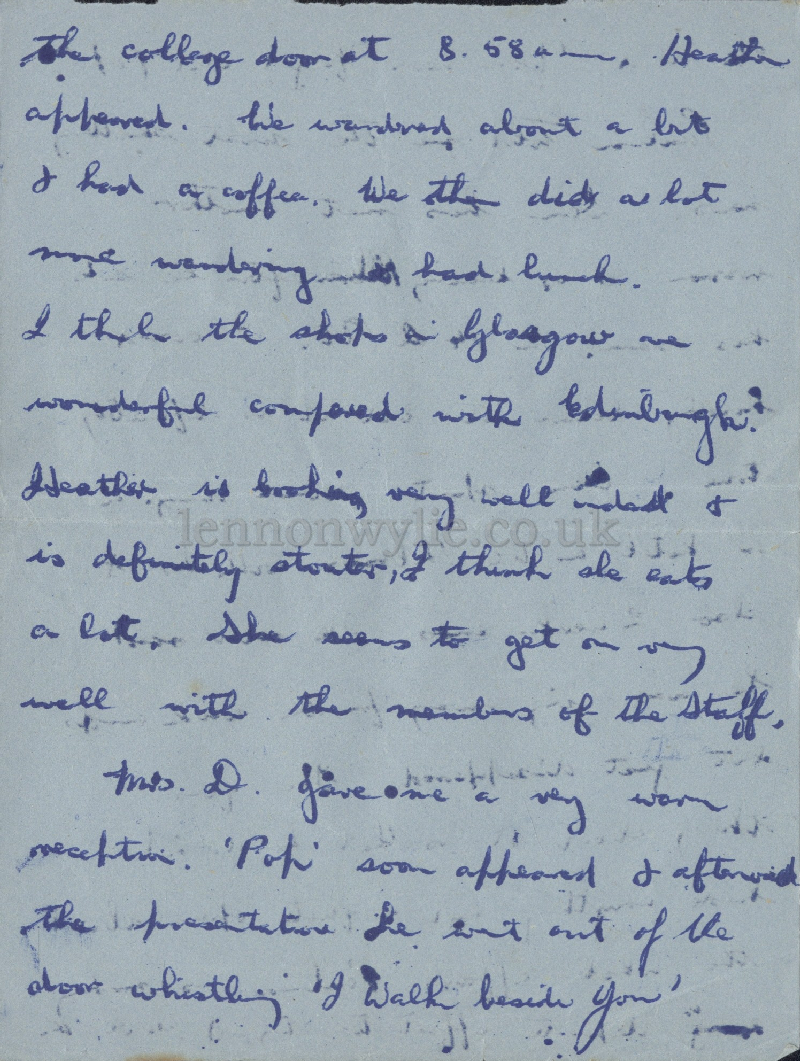 the college door at 8.58 a.m. Heather
appeared. We wandered about a bit
& had a coffee. We then did a lot
more wandering & had lunch.
I think the shops in Glasgow are
wonderful compared with Edinburgh!
Heather is looking very well indeed &
lennonwylie.co.uk
is definitely stouter, I think she eats
a lot. She seems to get on very
well with the members of the Staff.
Mrs. D. gave me a very warm
reception. 'Pop' soon appeared & afterward
the presentation he went out of the
door whistling 'I Walk beside You'